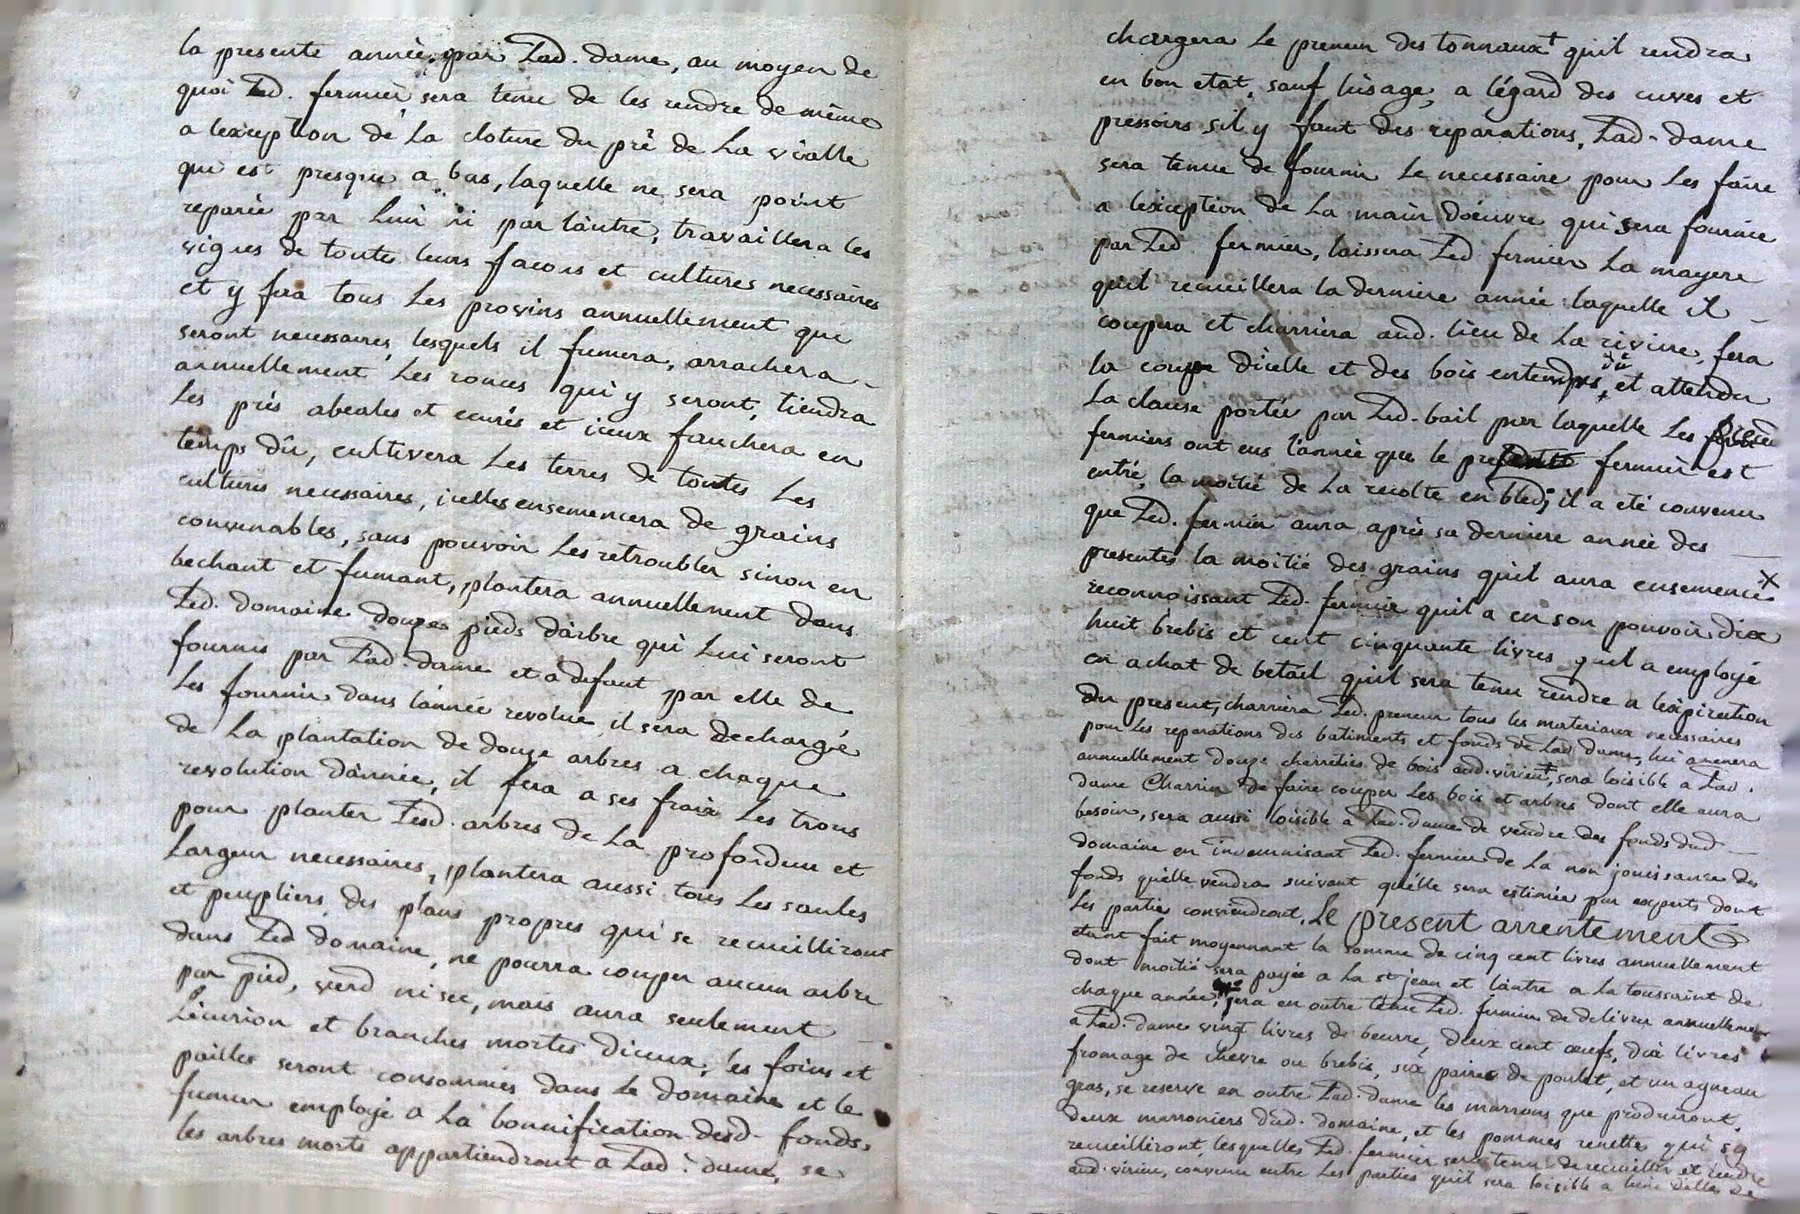 la presente année par Lad. dame, au moyen de
quoi Led. fermier sera tenu de les rendre de même
a l'exception de La cloture du pré de La vialle
qui est presque a bas, laquelle ne sera point
reparée par Luii ni par lautre, travaillera les
vignes de toute leurs facons et cultures necessaires
et y fera tous Les provins annuellement que
seront necessaires, lesquels il fumera, arrachera -
annuellement Les ronces qui y seront, tiendra
Les prés abeales et ecurés et iceux fauchera en
temps dû, cultivera Les terres de toutes Les
cultures necessaires, icelles ensemencera de grains
convenables, sans pouvoir Les retroubler sinon en
bechant et fumant, plantera annuellement dans
Led. domaine douze pieds d'arbre qui Lui seront
fournis par Lad. dame et a defaut par elle de
Les fournir dans lannée revolue il sera dechargé
de La plantation de douze arbres a chaque
revolution dannée, il fera a ses fraix Les trous
pour planter Lesd. arbres de La profondeur et
Largeur necessaires, plantera aussi tous Les saules
et peupliers des plans propres qui se recueilliront
dans Led domaine, ne pourra couper aucun arbre
par pied, verd ni sec, mais aura seulement
Lecurion et branches mortes diceux; les foins et
pailles seront consommés dans le domaine et le
fumier employé a La bonnification desd. fonds,
les arbres morts appartiendront a Lad. dame, se
chargera Le preneur des tonnaux + quil rendra
en bon etat, sauf lusage, a légard des cuves et
pressoirs sil y faut des reparations, Lad. dame
sera tenue de fournir Le necessaire pour Les faire
a lexception de La main doeuvre qui sera fournie
par Led fermier, laissera Led fermier La mayere
quil recueillera la derniere année laquelle il -
coupera et charriera aud. lieu de La riviere, fera
la coupe dicelle et des bois entemps dû, et attendu
La clause portée par Led. bail par laquelle Les
fermiers ont eus lannée que le fermier est
entré, la moitié de La recolte en bled; il a eté convenu
que Led. fermier aura après sa derniere année des
presentes la moitié des grains quil aura ensemencé X
reconnoissant Led. fermier quil a en son pouvoir dix
huit brebis et cent cinquante livres quil a employé
en achat de betail quil sera tenu rendre a lexpiration
du present, charriera Led. preneur tous les materiaux necessaires
pour Les reparations des batiments et fonds de Lad dame, lui amenera
annuellement douze charretées de bois aud. virieu +, sera loisible a Lad.
dame Charrin de faire couper Les bois et arbres dont elle aura
besoin, sera aussi loisible a Lad. dame de vendre des fonds dud
domaine en indemnisant Led. fermier de La non jouissance des
fonds quelle vendra suivant quelle sera estimée par experts dont
Les parties conviendront, Le present arrentement
etant fait moyennant la somme de cinq cent livres annuellement
dont moitié sera payée a La st jean et lautre a La toussaint de
chaque année, sera en outre tenu Led. fermier de delivrer annuellement
a Lad. dame vingt livres de beurre, deux cent oeufs, dix livres
fromage de chevre ou brebis, six paires de poulet, et un agneau
gras, se reserve en outre Lad. dame les marrons que produiront
deux marroniers dud. domaine, et les pommes renettes qui se
recueilliront, lesquelles Led. fermier sera tenu de recueillir et rendre
aud. virieu, convenu entre Les parties quil sera loisible a lune delles de